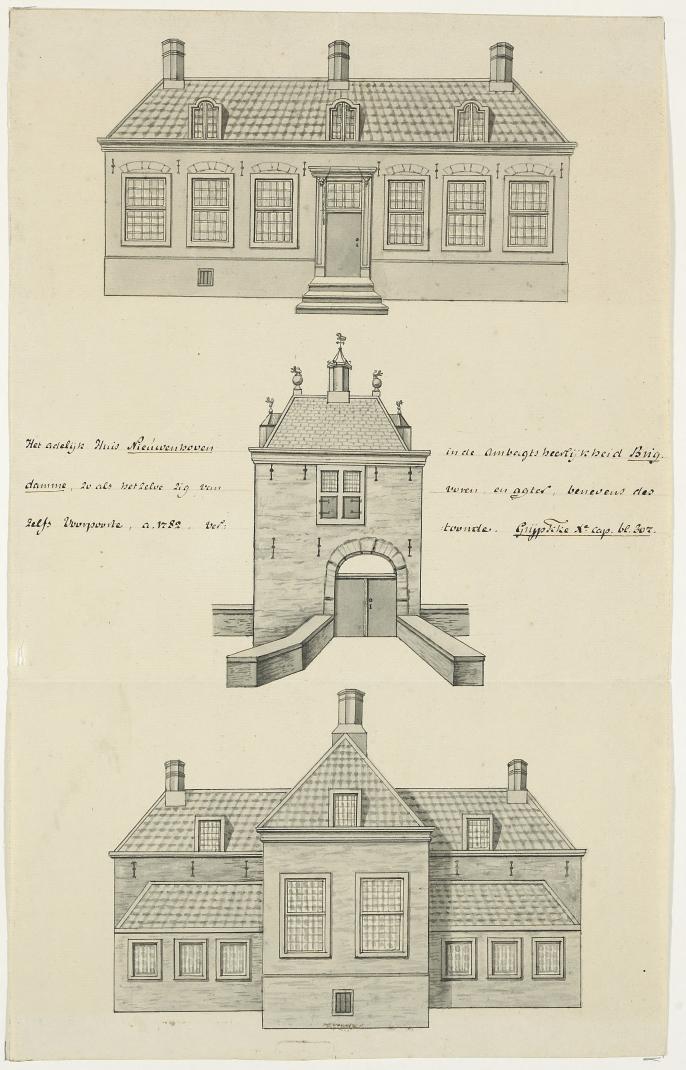 Het adelijk Huis Nieuwenhoven in de Ambagtsheerlijkheid Brig.
damme, zo als hetzelve zig van voren en agter, benevens des
zelfs Voorpoorte, a. 1782. ver: toonde. Grijpskke Xe Cap. bl. 307.